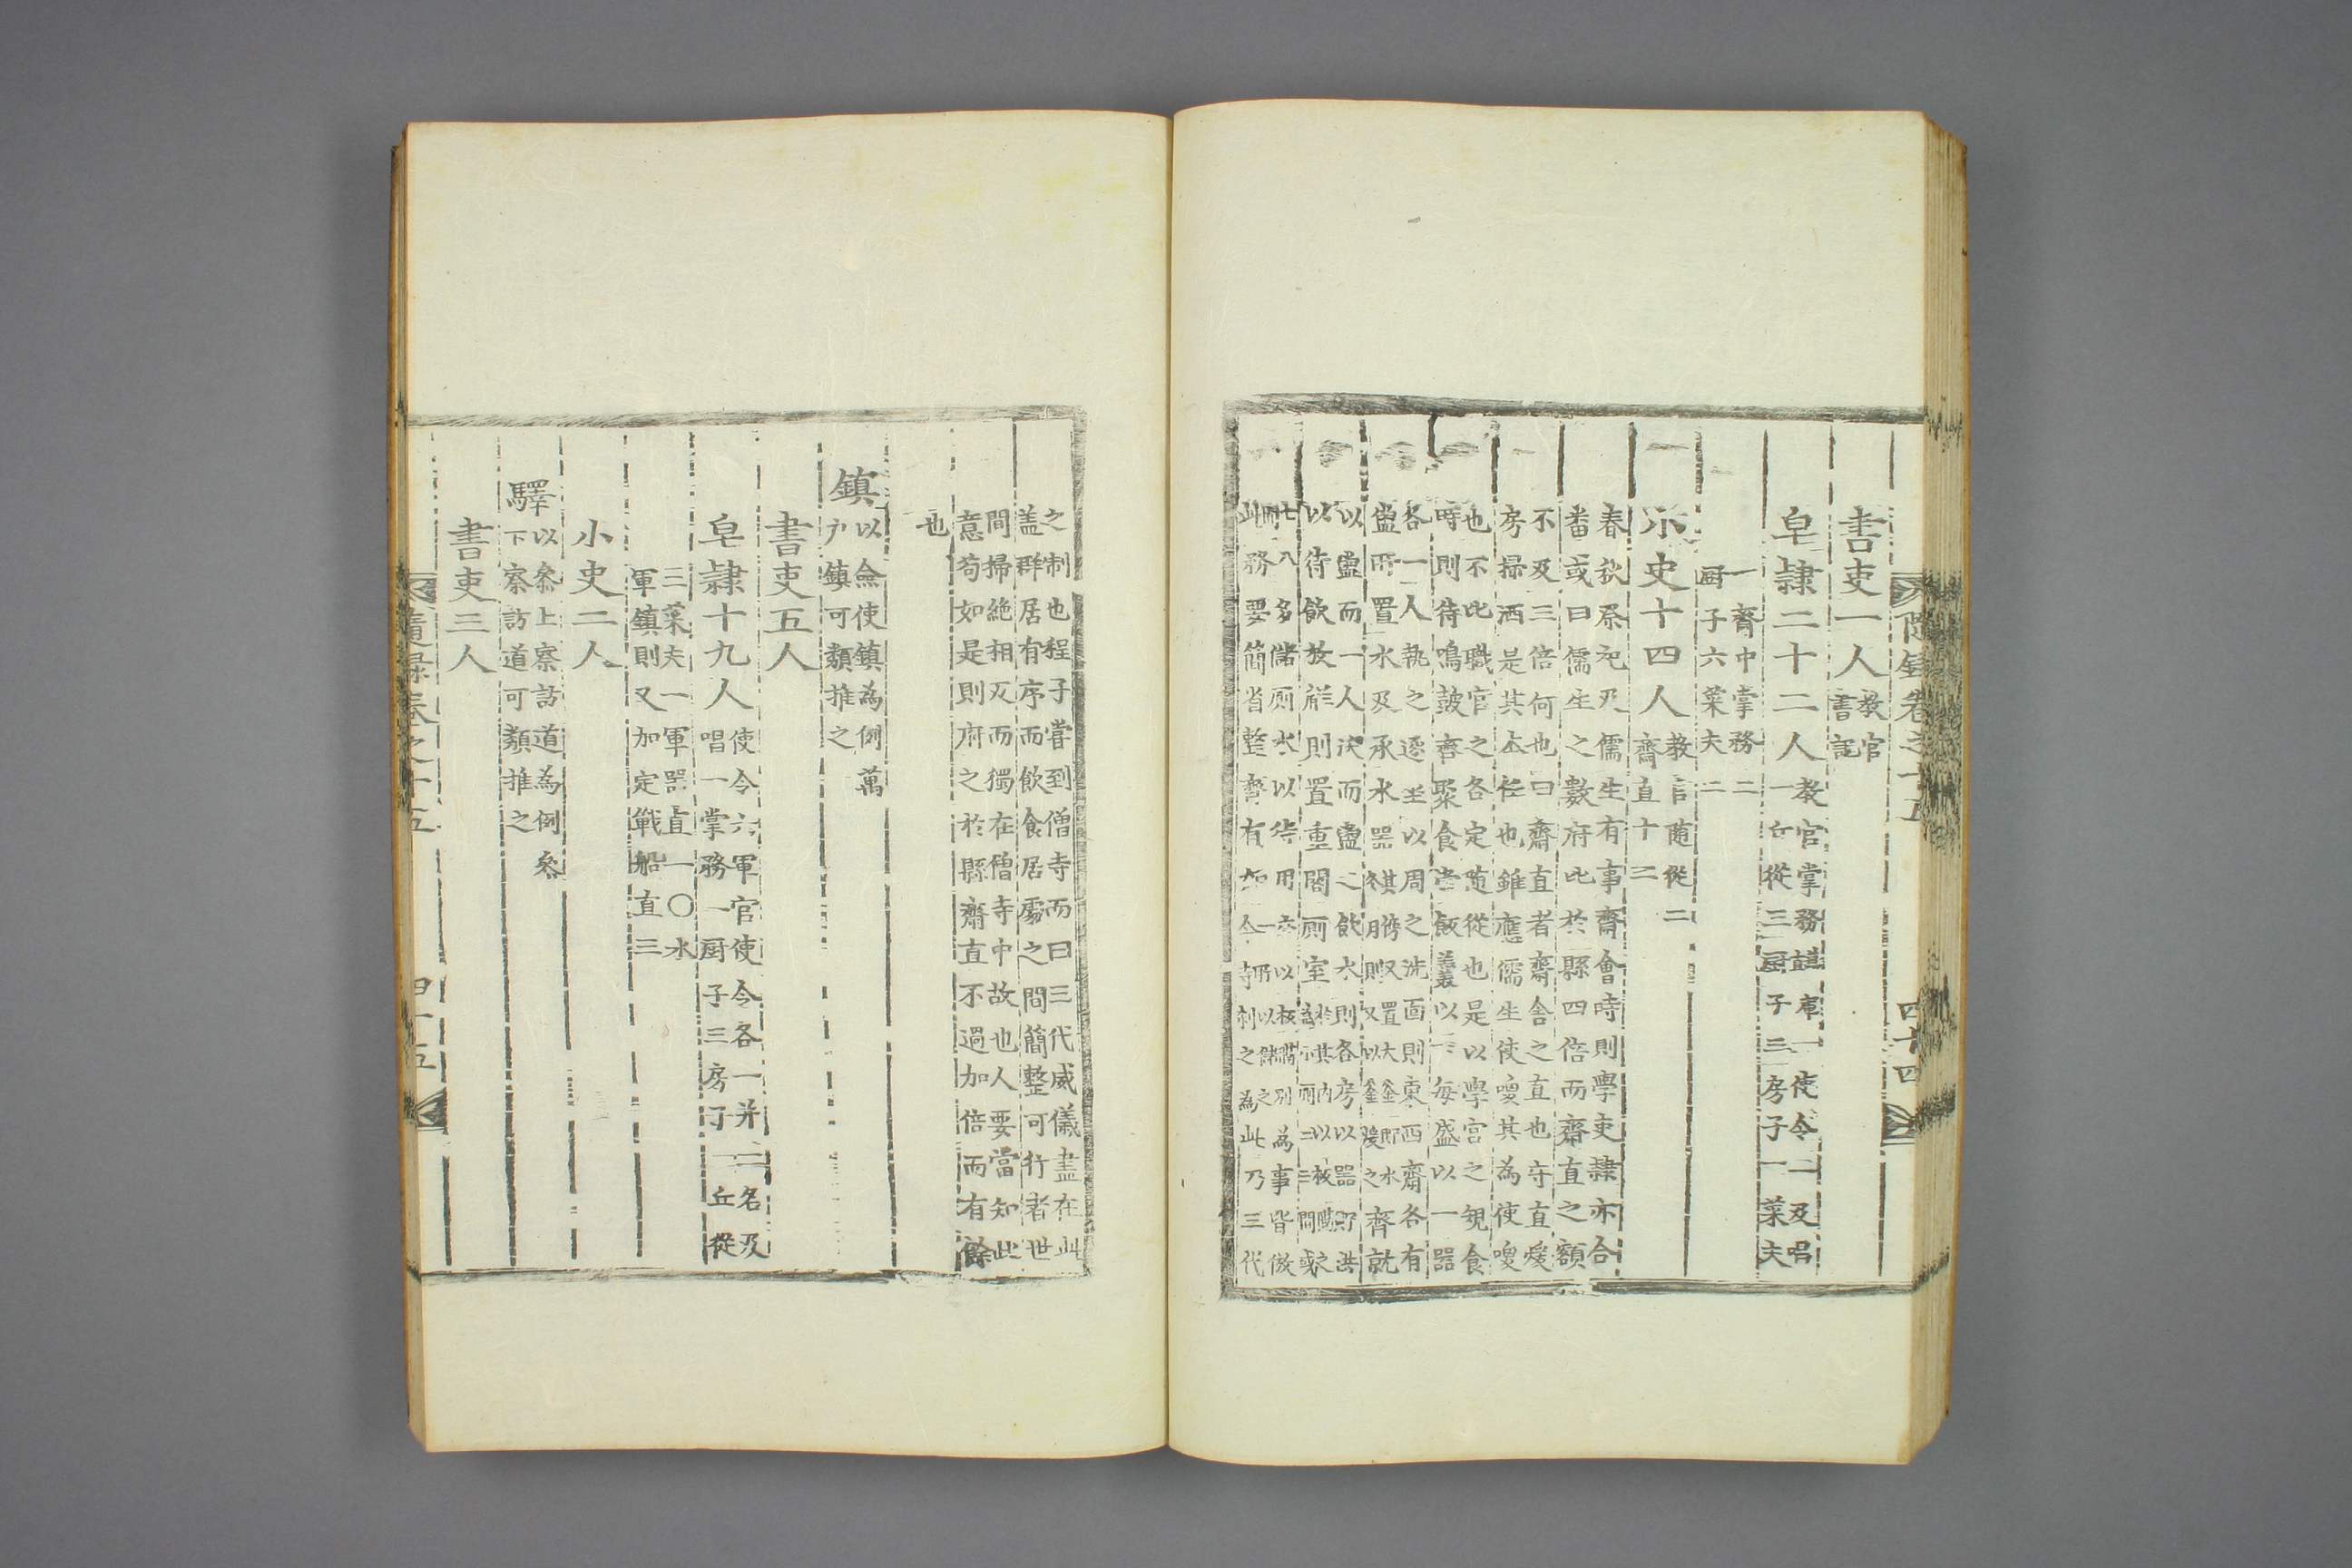 隨錄卷之十五
四十四
書吏一人
教官
書記
皁隷二十二人
教官掌務一庫一使令二及唱
一丘從三厨子三房子一菜夫
一齋中掌務二
厨子六菜夫二
小史十四人
教官隨從二
齋直十二
春秋祭祀及儒生有事齋會時則學吏隷亦合
番或曰儒生之數府比於縣四倍而齋直之額
不及三倍何也曰齋直者齋舍之直也守直煖
房掃洒是其本任也雖應儒生使喚其為使喚
也不比職官之各定随從也是以學宮之規食
時則待鳴鼓齊聚食堂飯羹以下每盛以一器
各一人執之遍呈以周之洗面則東西齋各有
盥所置水及承水器
齊就
以盥而一人決而盥之飲水則各房以器
以待飲放前則置重閤厠室
七八多儲厠木以待用
為事皆倣
此務要簡省整齊有
今寺刹之為此乃三代
之制也程子嘗到僧寺而曰三代威儀盡在此
盖群居有序而飲食居處之間簡整可行者世
間掃絶相反而獨在僧寺中故也人要當知此
意苟如是則府之於縣齋直不過加倍而有餘
也
鎮
以僉使鎮為例萬
户鎮可類推之
書吏五人
皁隷十九人
使令六軍官使令各一并二名及
唱一掌務一厨子三房子一丘從
三菜夫一軍器直一〇水
軍鎮則又加定戰船直三
小史二人
驛
以叅上察訪道為例叅
下察訪道可類推之
書吏三人
隨錄卷之十五
四十五